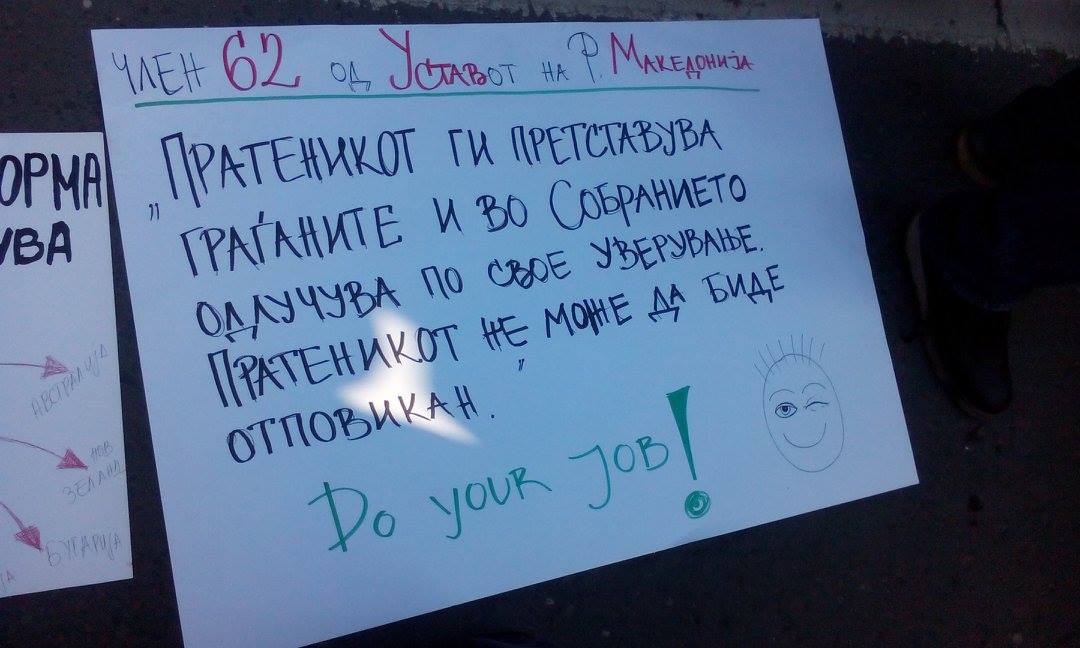 Член 62 од Уставот на Р. Македонија
„Пратеникот ги претставува
граѓаните и во Собранието
одлучува по свое уверување.
Пратеникот не може да биде
отповикан."
Do your job!
ОРМА
УВА
Австралија
Нов
Зеланд
Бугарија